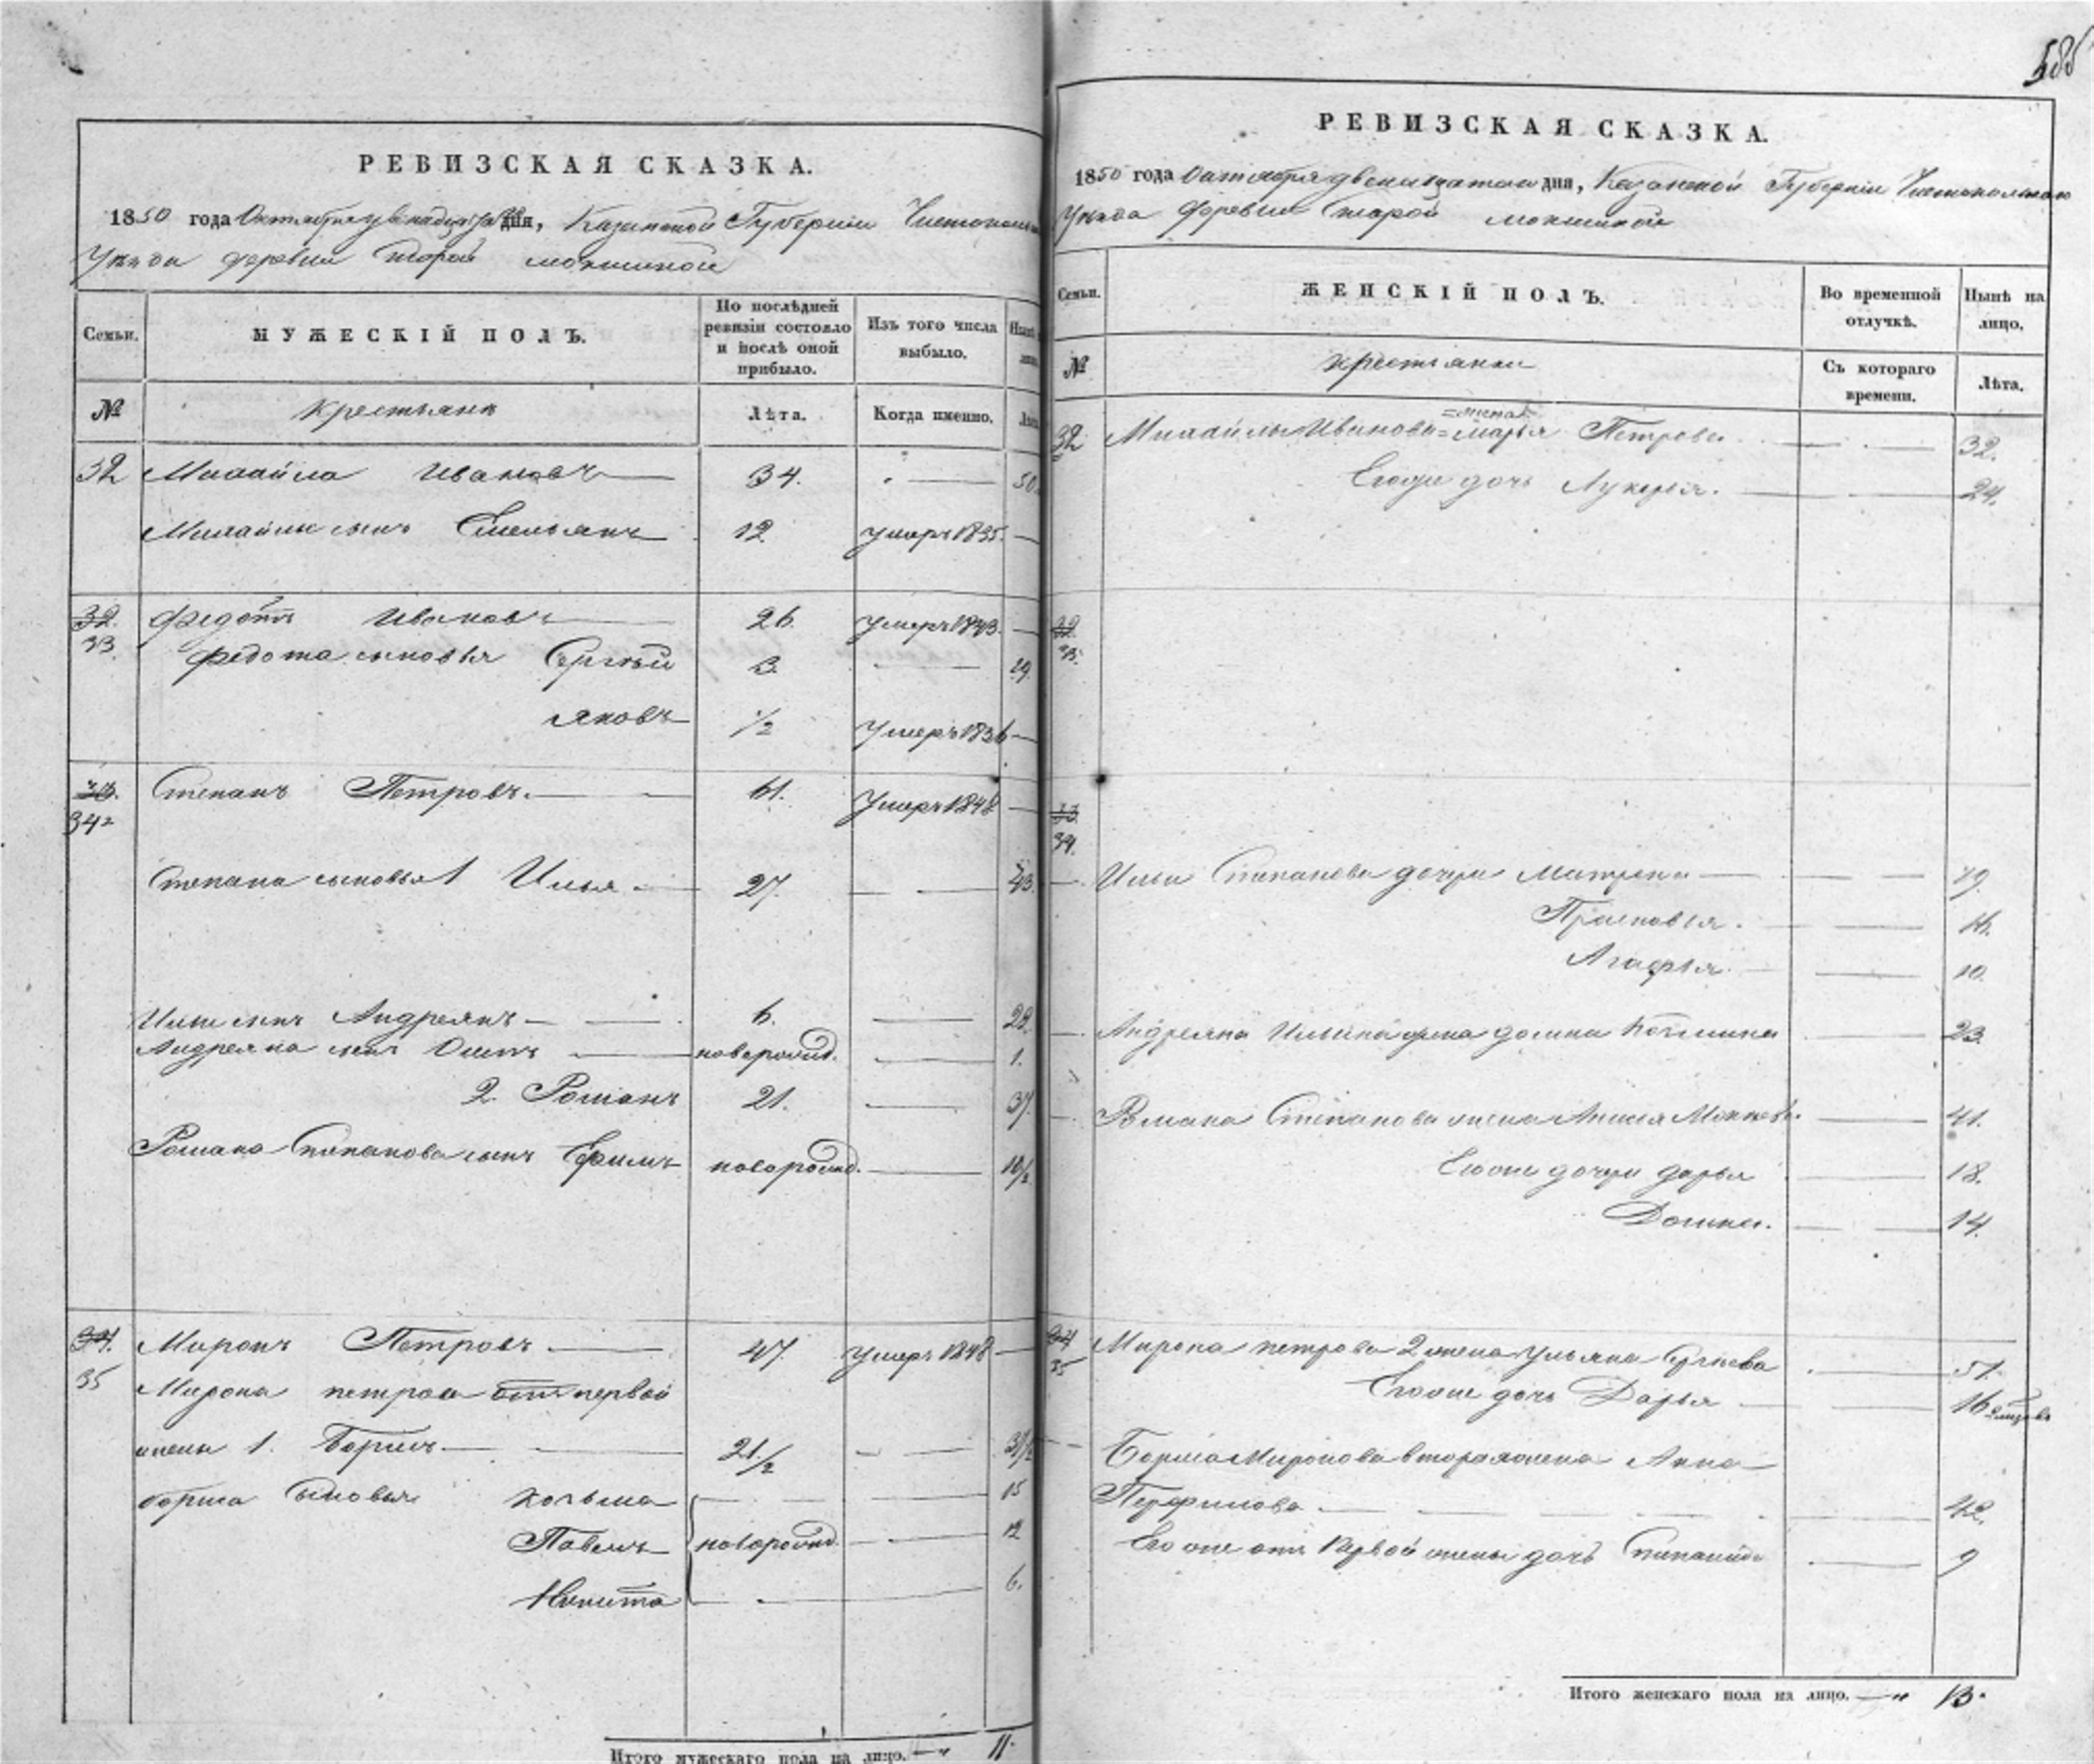 588
РЕВИЗСКАЯ СКАЗКА.
1850 года Октября двенадцатаго дня, Казанской Губерніи Чистопольск
Уѣзда деревни Старой Мокшиной
Семьи.
МУЖЕСКІЙ ПОЛЪ.
По послѣдней ревизіи состояло и послѣ оной прибыло.
Изъ того числа выбыло.
Нынѣ
№
Крестьянъ
Лѣта.
Когда именно.
32 Михайла Ивановъ 34. 50
Михайлы сынъ Емельянъ 12 умеръ 1835.
32. 33. Федотъ Ивановъ 26. умеръ 1843.
Федота сыновья Сергѣй 3. 19.
Яковъ 1/2 умеръ 1836
33. 34 Степанъ Петровъ. 61. умеръ 1848
Степана сыновья 1 Илья. 27. 43.
Ильи сынъ Андреянъ 6. 22.
Андреяна сынъ Осипъ новорожд. 1.
2. Романъ 21. 37.
Романа Степанова сынъ Ефимъ новорожд. 10/2
34. 35 Миронъ Петровъ. 47. умеръ 1848
Мирона петрова отъ первой
жены 1. Борисъ 21 1/2 37/2
бориса сыновья Козьма 15
Павелъ новорожд. 12
Никита 6.
Итого мужескаго пола на лицо. 11.
РЕВИЗСКАЯ СКАЗКА.
1850 года Октября двенадцатаго дня, Казанской Губерніи Чистопольскаго
Уѣзда деревни Старой Мокшиной
Семьи.
ЖЕНСКІЙ ПОЛЪ.
Во временной отлучкѣ.
Нынѣ на лицо.
№
Крестьянки
Съ котораго времени.
Лѣта.
32 Михайлы Иванова жена Марья Петрова 32.
Егоже дочь Лукерья. 24.
32. 33.
33. 34.
Ильи Степанова дочери Матрена 19.
Прасковья. 16.
Агафья. 10.
Андреяна Ильина жена домна 23.
Романа Степанова жена Анисья 41.
Егоже дочери дарья 18.
Домна. 14.
34 35 Мирона петрова 2 жена Ульяна Сергѣева 51.
Егоже дочь Дарья 16
Бориса Миронова вторая жена Анна
Перфилова. 42.
Его же отъ Первой жены дочь Степанида 9
Итого женскаго пола на лицо. 13.